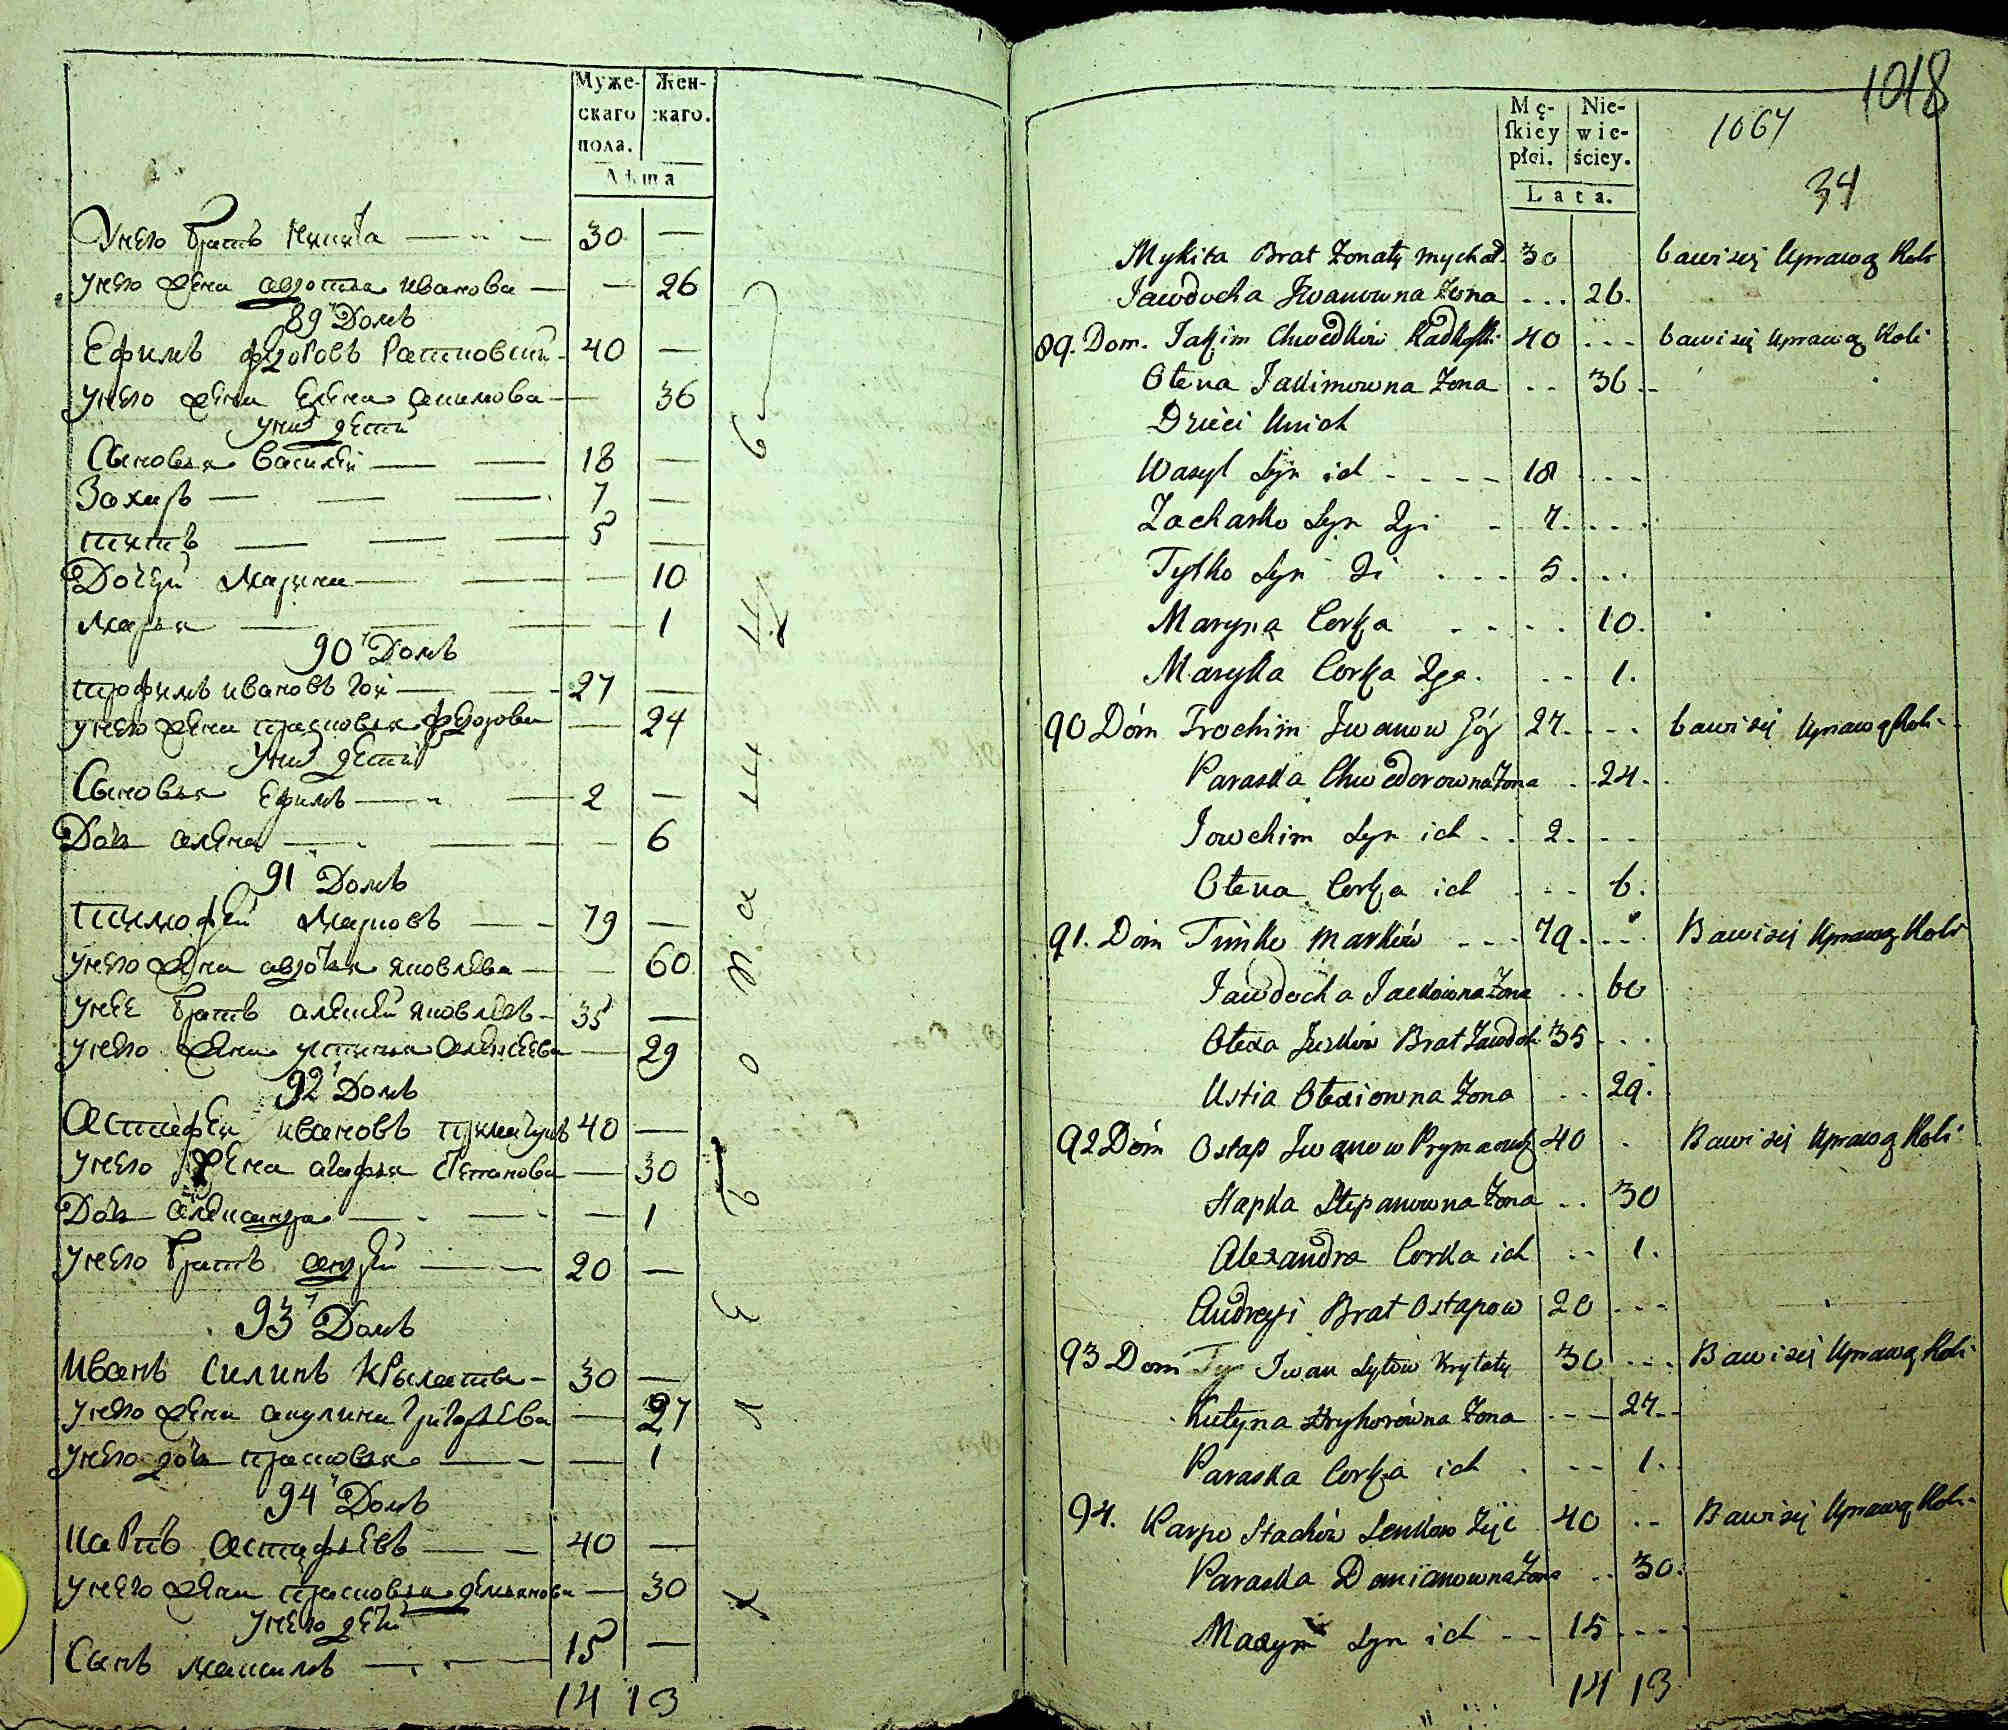 Муже-
скаго
пола.
Жен-
скаго.
Лѣта
У него братъ Никита — 30 —
У него жена Авдотья Иванова — — 26
89 Домъ
Ефимъ Федоровъ — 40 —
У него жена Елена Акимова — — 36
У них дети
Сыновья Василей — 18 —
Захаръ — 7 —
Титъ — 5 —
Дочери Марина — — 10
Марья — — 1
90 Домъ
Трофимъ Ивановъ Гой — 27 —
У него жена Прасковья Федорова — 24
У них дети
Сыновья Ефимъ — 2 —
Дочь Алена — — 6
91 Домъ
Тимофей Марковъ — 79 —
У него жена Авдотья Яковлева — — 60
У нее братъ Алексей Яковлевъ — 35 —
У него жена Устинья Алексеева — 29
92 Домъ
Астафей Ивановъ 40 —
У него жена Агафья Степанова — 30
Дочь Александра — — 1
У него братъ Андрей — 20 —
93 Домъ
Иванъ Силинъ Крылаты — 30 —
У него жена Акулина Григорьева — 27
У него дочь Прасковья — — 1
94 Домъ
Карпъ Астафьевъ — 40 —
У него жена Прасковья Демьянова — 30
У него дети
Сынъ Максимъ — 15 —
14 13
1018
1064
34
Mę-
skiey
płci.
Nie-
wie-
ściey.
Lata.
Mykita Brat Zonaty Mychał. 30 bawi się Uprawą Roli
Jawdocha Iwanowna Zona ... 26.
89. Dom. Jakim Chwedków 40 ... bawi się Uprawą Roli
Olena Jakimowna Zona .. 36..
Dzieci Unich
Wasyl Syn ich . . . . 18 ...
Zacharko Syn . 7. ...
Tytko Syn . . . 5. ..
Maryna Corka . . . . 10.
Maryka Corka .. 1.
90 Dóm Trochim Iwanow Gój 27. ... bawi się Uprawą Roli
Paraska Chwedorowna Zona . 24.
Jowchim Syn ich .. 2. ...
Olena Corka ich ... 6.
91. Dóm Timko Marków ... 79. ... Bawi się Uprawą Roli
Jawdocha Jackówna Zona .. 60
Olexa Brat Jawdoch 35 ...
Ustia Olexiowna Zona .. 29.
92 Dóm Ostap Iwanow 40 . Bawi się Uprawą Roli
Hapka Stepanowna Zona .. 30
Alexandra Corka ich .. 1.
Andreyi Brat Ostapow 20 ...
93 Dom Iwan Sylow Krylaty 30 ... Bawi się Uprawą Roli
Kulyna Hryhorówna Zona ... 27..
Paraska Corka ich . .. 1..
94. Karpo Stachów 40 .. Bawi się Uprawą Roli
Paraska Demianowna Zona .. 30.
Maxym Syn ich .. 15 ....
14 13